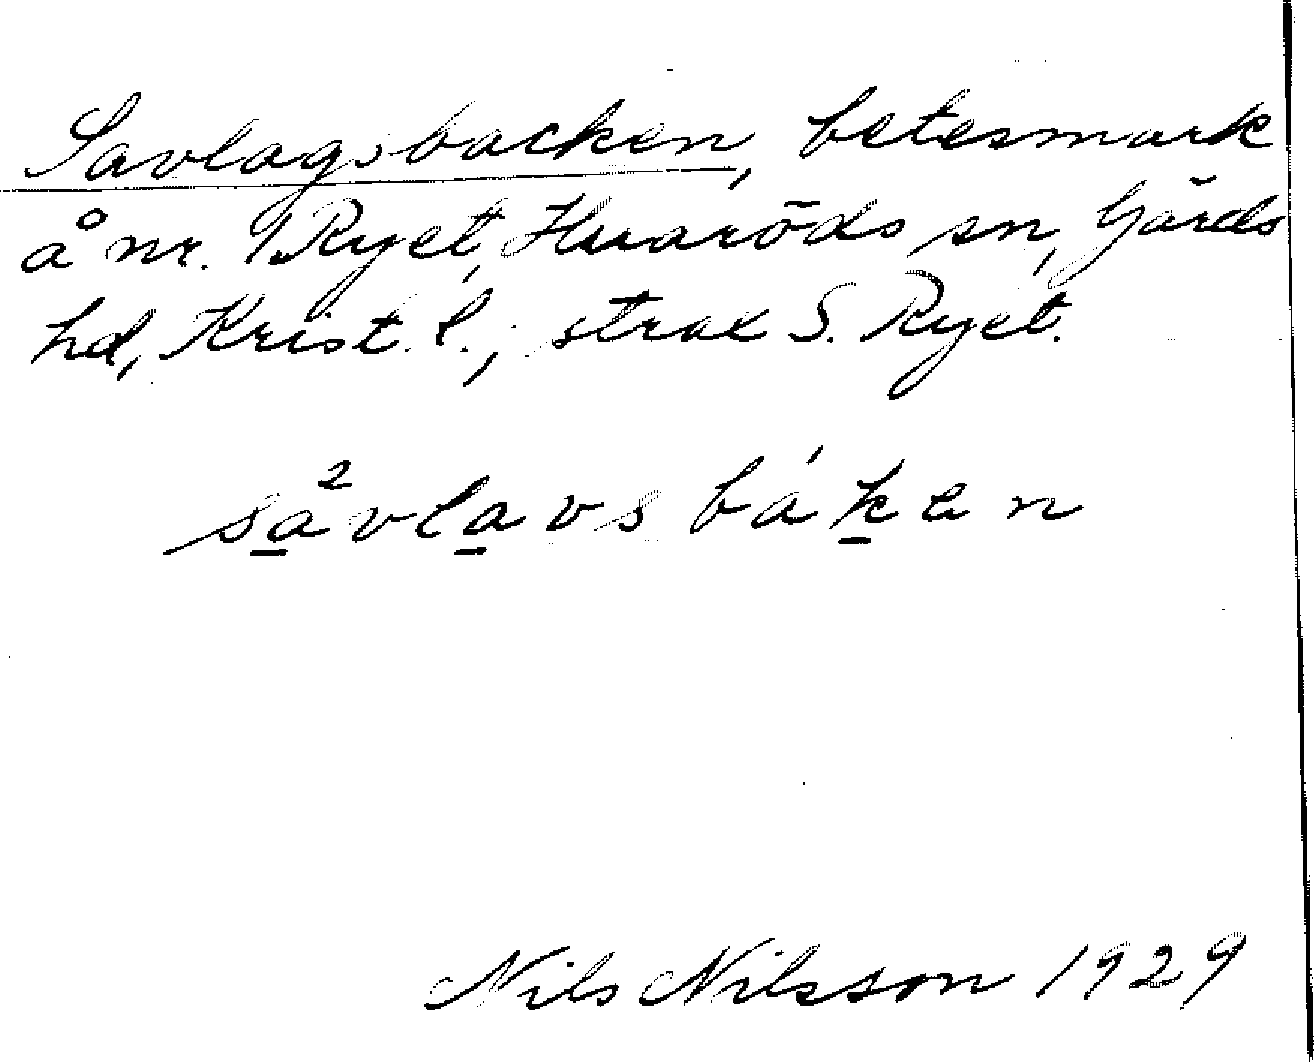 Savlagsbacken, betesmark
å nr. 1 Ryet, Huaröds sn, Gärds
hd, Krist. l.; strax S. Ryet.
sa²vlavs báken
Nils Nilsson 1929